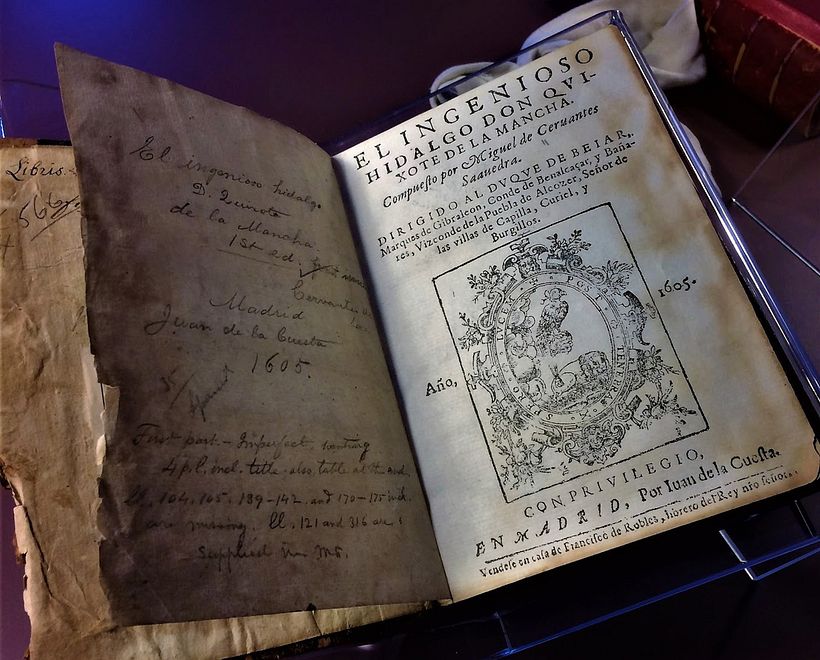 Libris.
566
El ingenioso hidalgo
D. Quixote
de la Mancha.
1st ed.
Cervantes
Madrid
Juan de la Cuesta
1605.
First part – Imperfect, wanting
4 p.l. incl. title also table at the end.
ll. 104, 105, 139-142 and 170-175 incl.
are missing. ll. 121 and 316 are
supplied in ms.
EL INGENIOSO
HIDALGO DON QVI-
XOTE DE LA MANCHA.
Compuesto por Miguel de Ceruantes
Saauedra.
DIRIGIDO AL DVQVE DE BEIAR,
Marques de Gibraleon, Conde de Benalcaçar, y Baña-
res, Vizconde de la Puebla de Alcozer, Señor de
las villas de Capilla, Curiel, y
Burgillos.
Año, 1605.
CON PRIVILEGIO,
EN MADRID, Por Iuan de la Cuesta.
Vendese en casa de Francisco de Robles, librero del Rey nro señor.